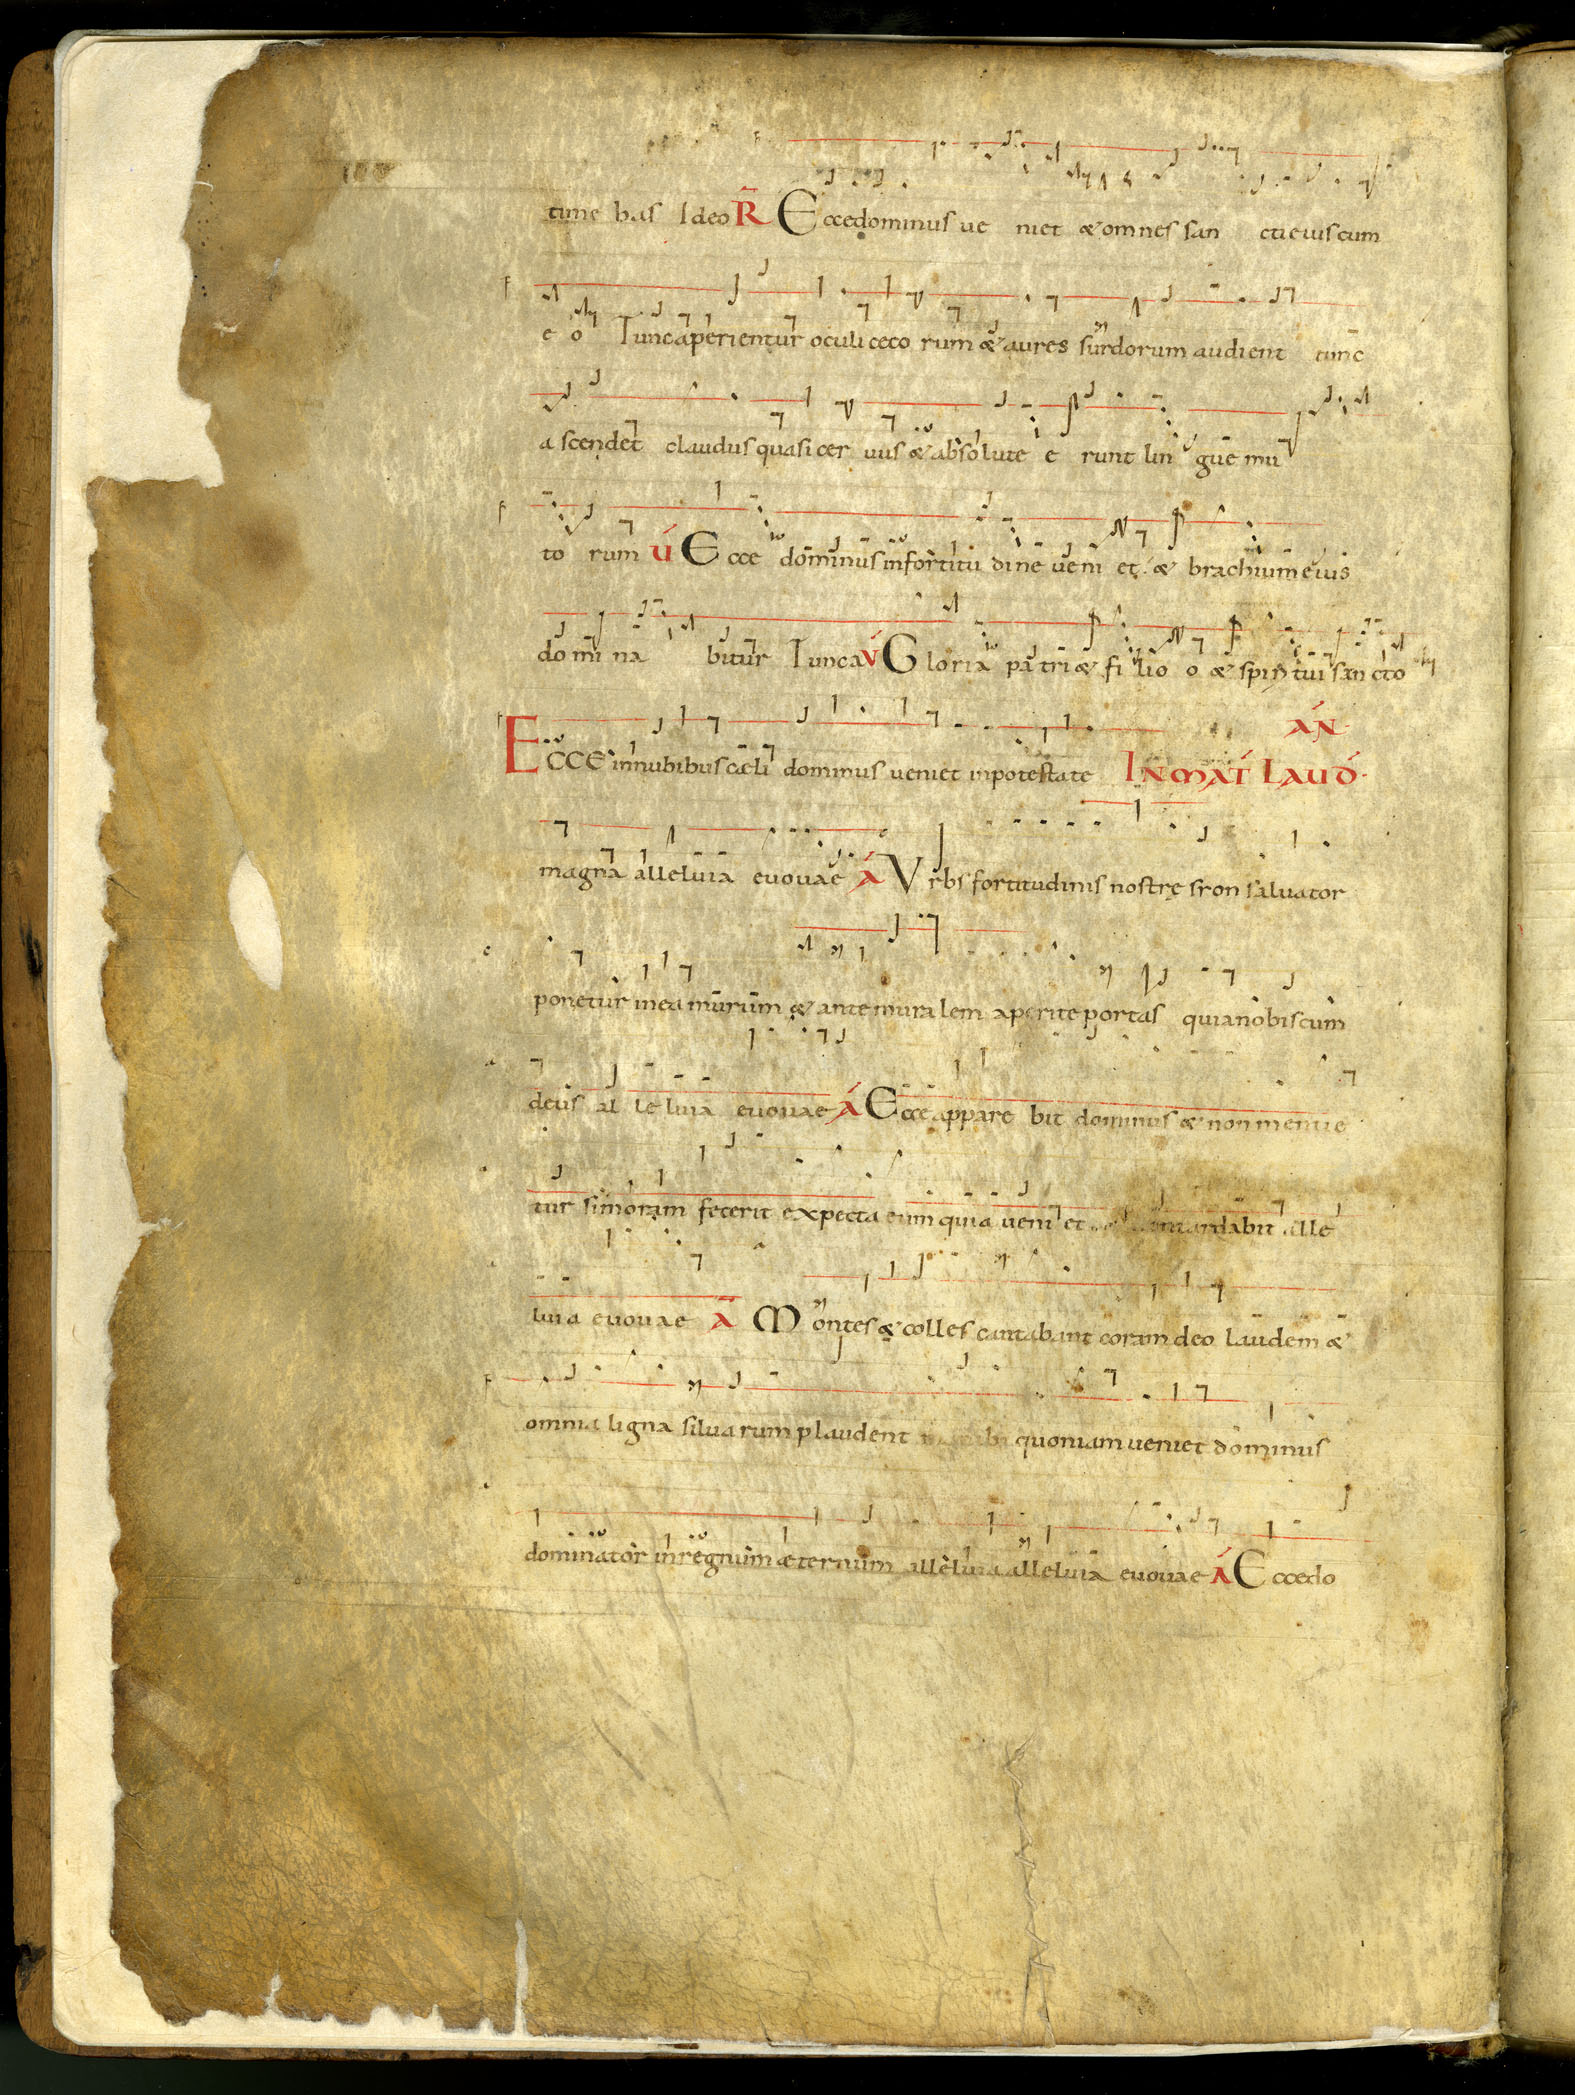 time bas Ideo R Ecce dominus ue niet & omnes san cti eius cum
e o Tunc aperientur oculi ceco rum & aures surdorum audient tunc
a scendet claudus quasi cer uus & absolute e runt lin gue mu
to rum V Ecce dominus in fortitu dine veni et & brachium eius
domi na bitur Tunc a V Gloria patri & fi lio o & spiri tui san cto
AN
ECCE in nubibus cæli dominus ueniet in potestate IN MAT LAUD
magna alleluia evovae A Vrbs fortitudinis nostrę sion saluator
ponetur in ea murum & ante mura lem aperite portas quia nobiscum
deus al le luia evovae A Ecce appare bit dominus & non mentie
tur si moram fecerit expecta eum quia veni et tardabit alle
luia evovae A Montes & colles cantabant coram deo laudem &
omnia ligna silua rum plaudent quoniam ueniet dominus
dominator in regnum æternum alleluia alleluia evovae A Ecce do